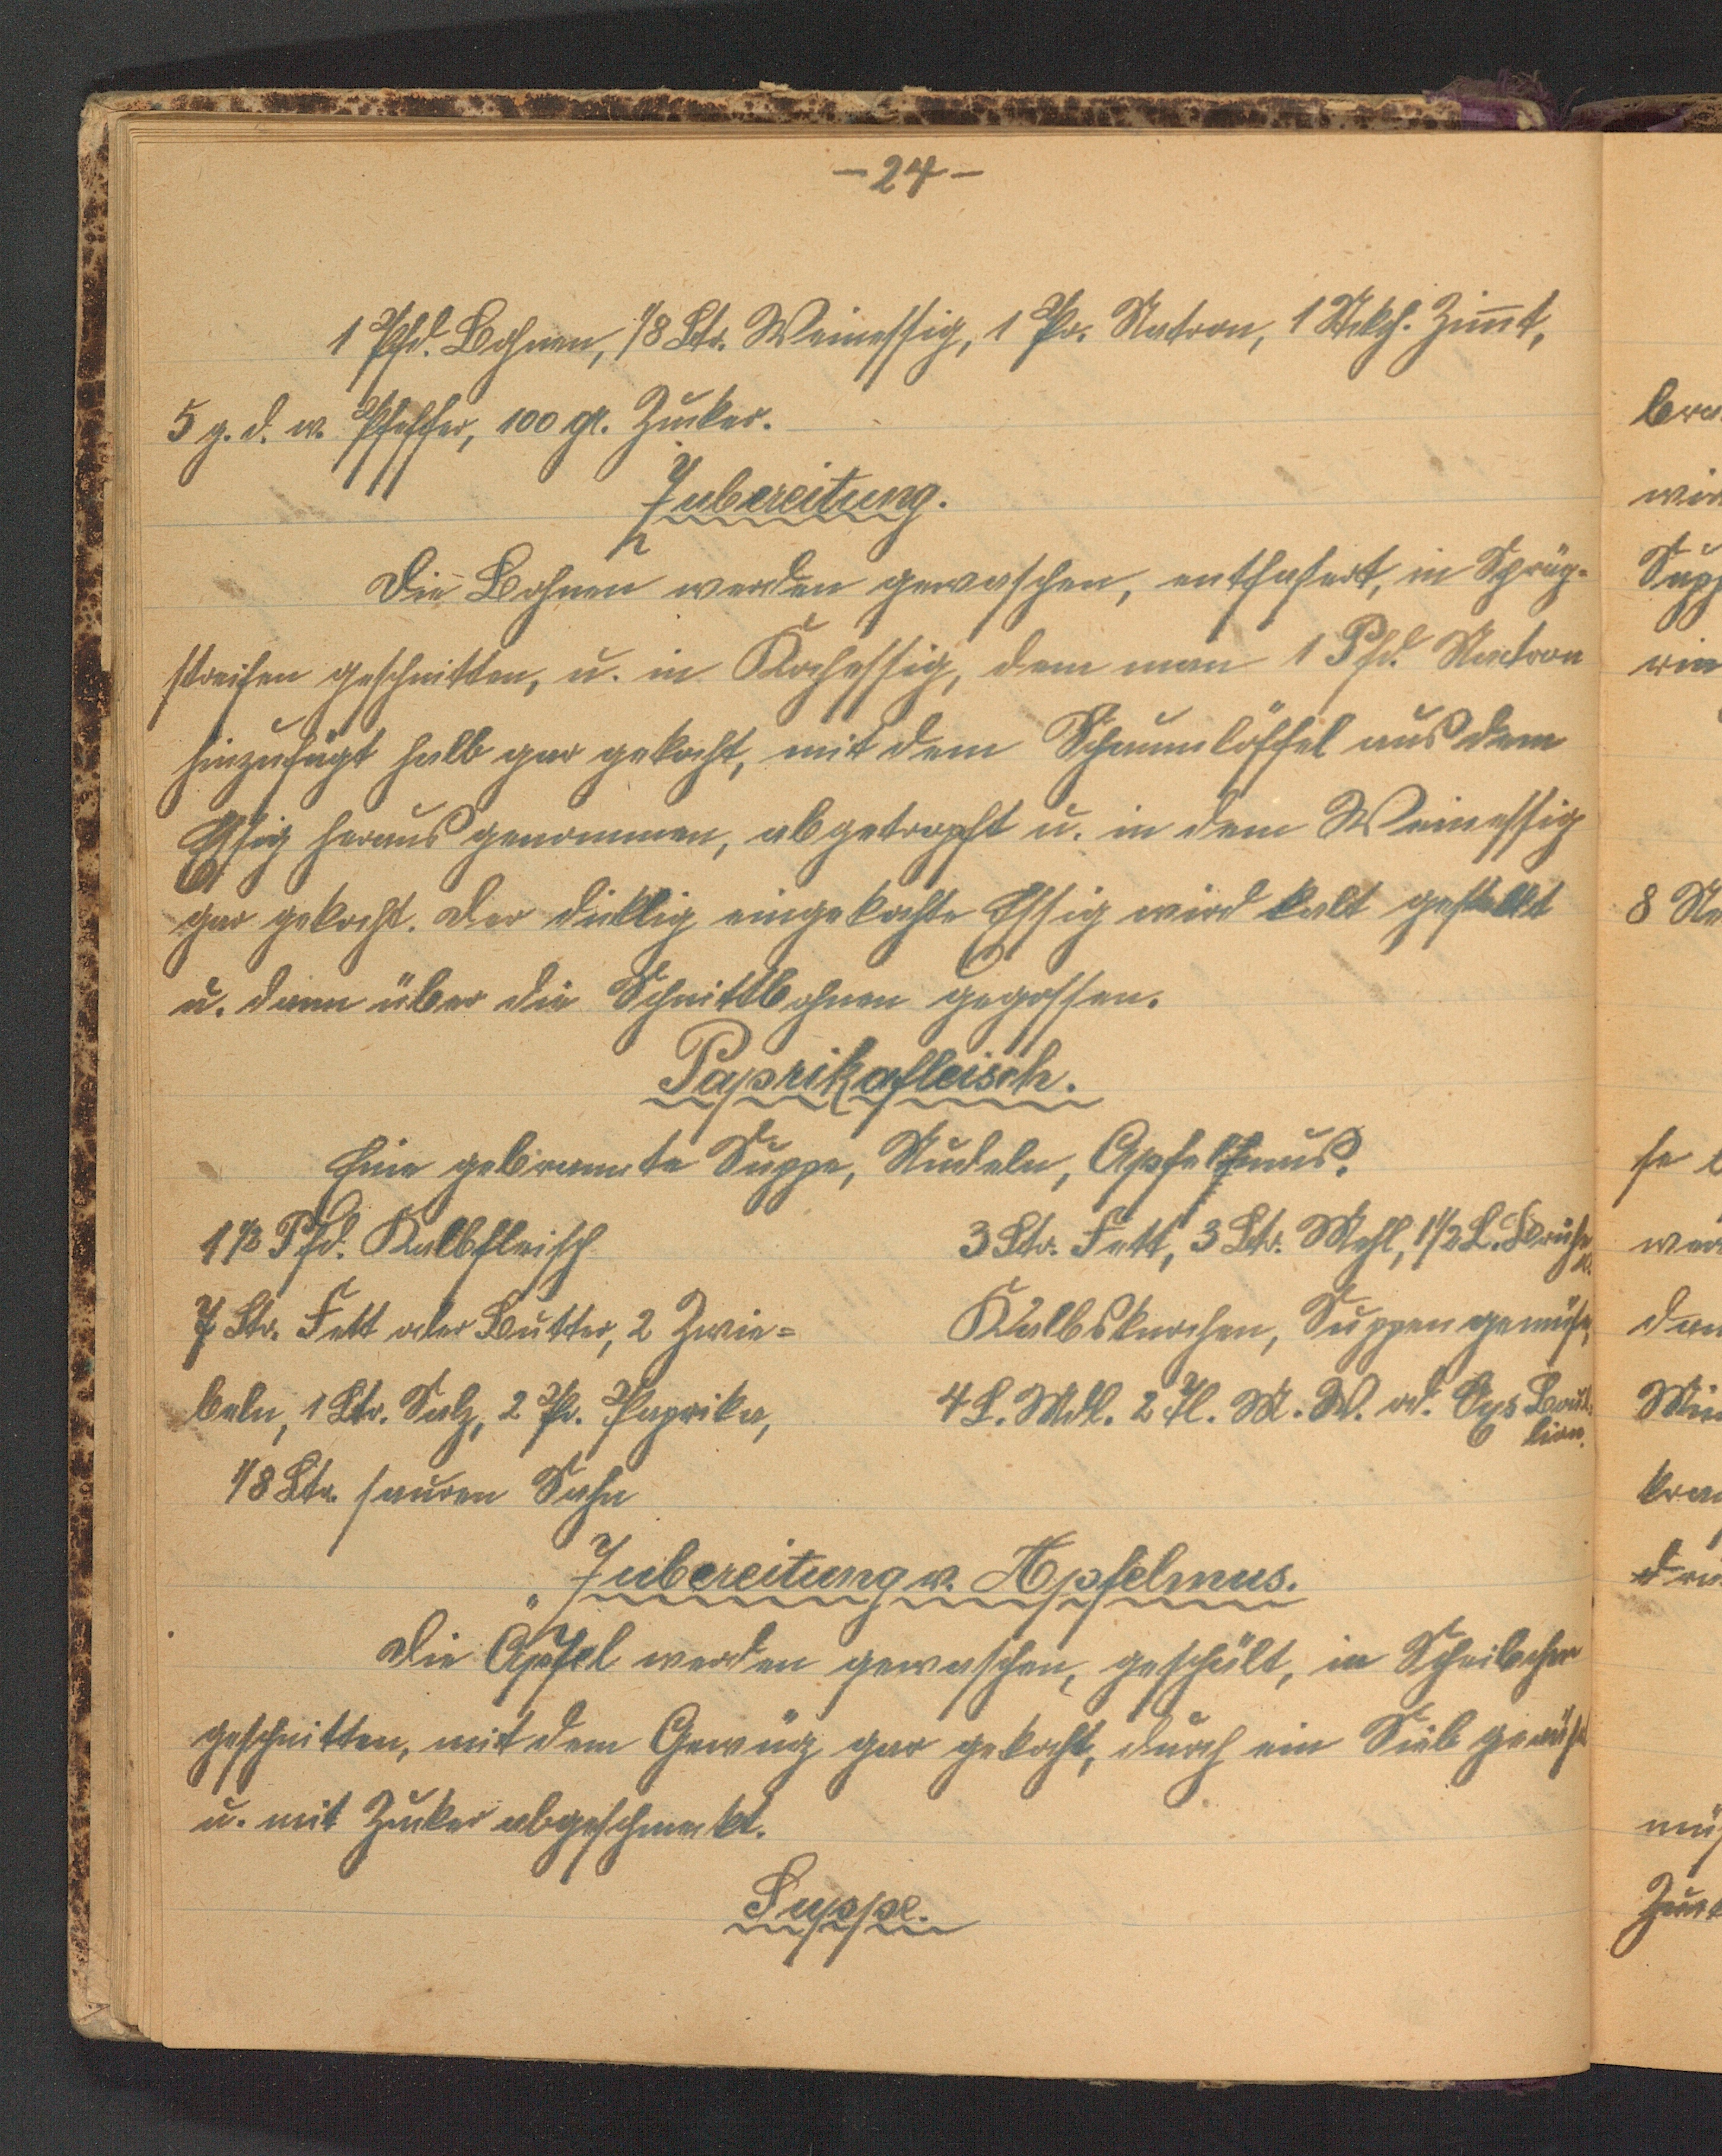 - 24 -
1 Pfd. Bohnen, 1/8 Ltr. Weinessig, 1 Pr. Natron, 1 Stkch. Zimt,
5 g. d. w. Pfeffer, 100 gr. Zucker.
Zubereitung.
Die Bohnen werden gewaschen, entfasert, in Schräg-
streifen geschnitten, u. in Kochessig, dem man 1 Pfd. Natron
hinzufügt halb gar gekocht, mit dem Schaumlöffel aus dem
Essig heraus genommen, abgetropft u. in dem Weinessig
gar gekocht. Der dicklig eingekochte Essig wird kalt gestellt
u. dann über die Schnittbohnen gegossen.
Paprikafleisch.
Eine gebrannte Suppe, Nudeln, Apfelmus.
1 1/2 Pfd. Kalbfleisch
7 Ltr. Fett oder Butter, 2 Zwie=
beln, 1 Ltr. Salz, 2 Pr. Paprika,
1/8 Ltr. sauren Sahn
3 Ltr. Fett, 3 Ltr. Mehl, 1 1/2 L. Brühe
Kalbsknochen, Suppengemüse,
4 L. Mdl. 2 Fl. M. W. od. Bouil-
lion.
Zubereitung v. Apfelmus.
Die Äpfel werden gewaschen, geschält, in Scheibchen
geschnitten, mit dem Gewürz gar gekocht, durch ein Sieb
u. mit Zucker abgeschmekt.
Suppe.